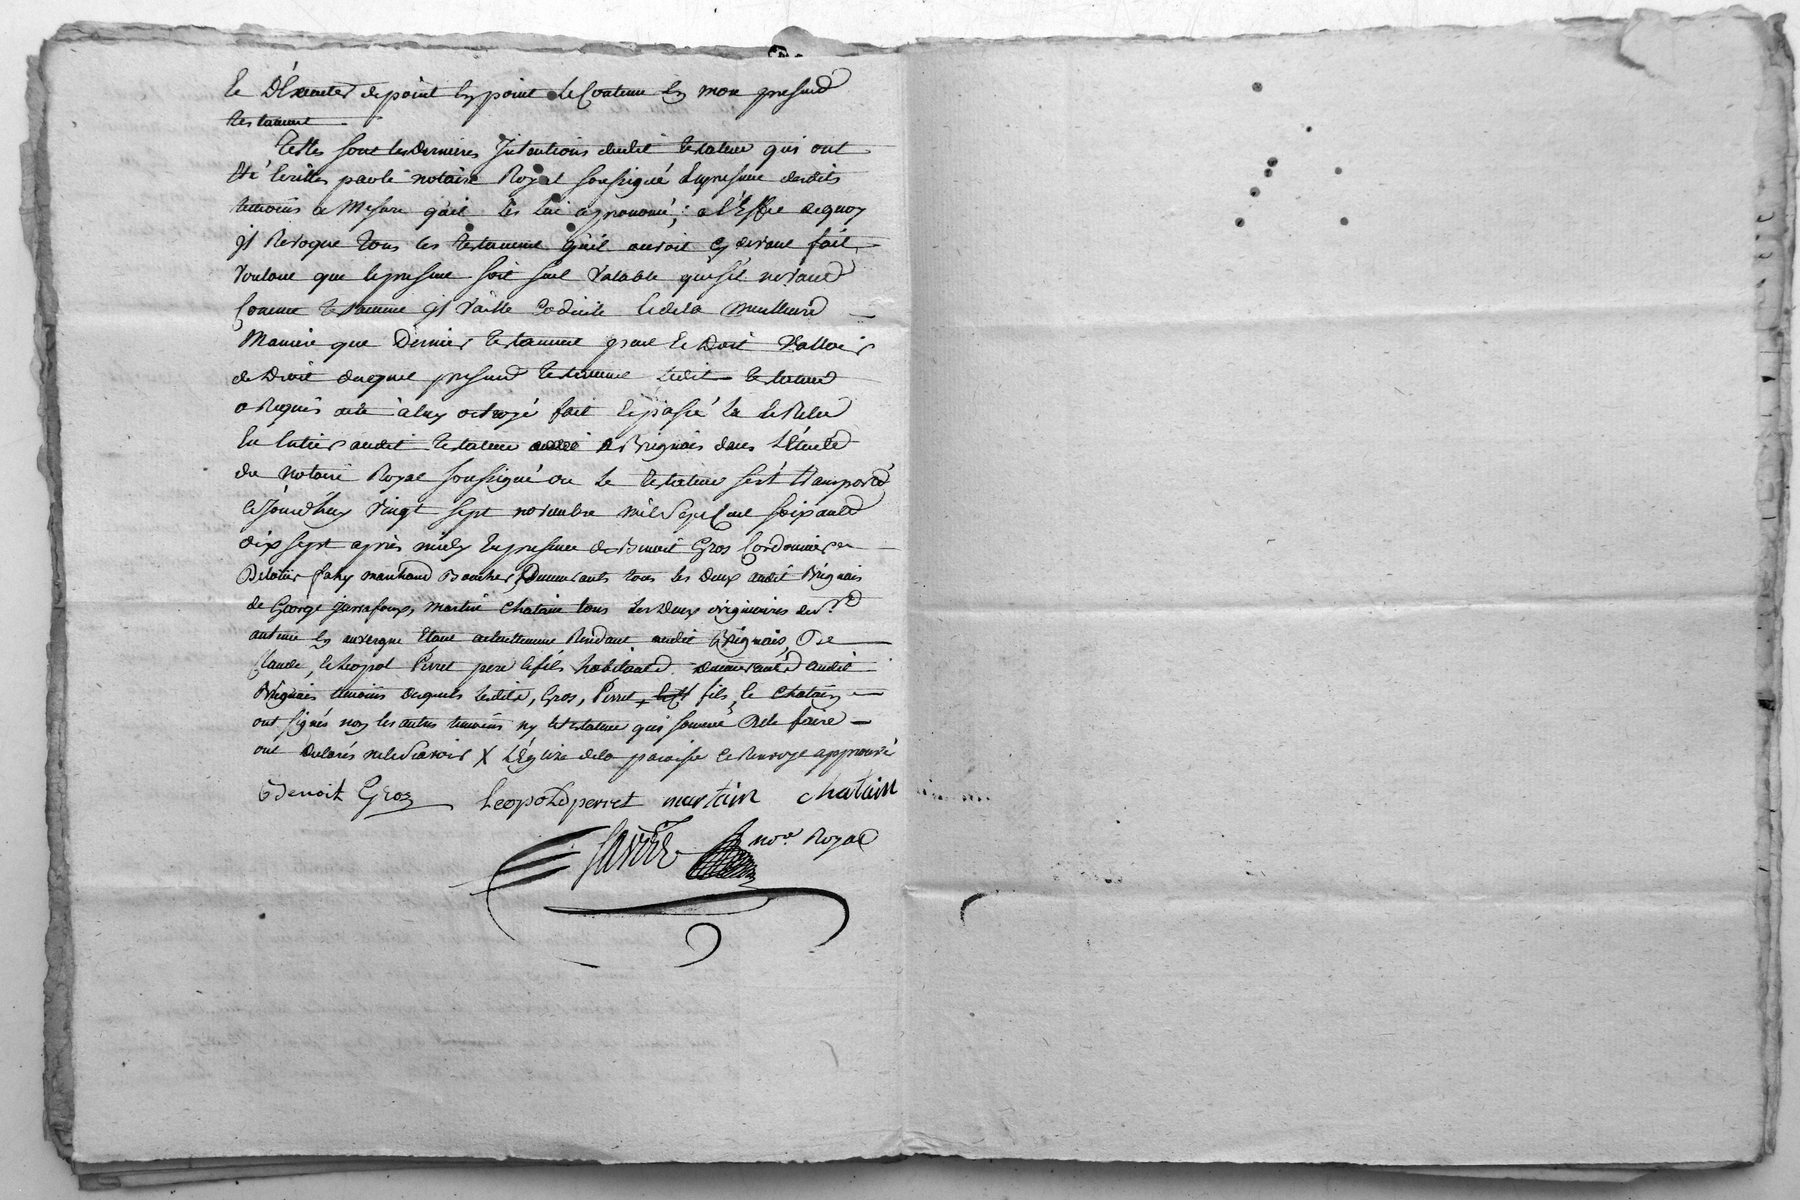 Et D'Executer de point en point le Contenu en mon present
testament
Telles sont les dernieres Intentions dudit testateur qui ont
Eté Ecrittes par le notaire Royal soussigné En presence desdits
temoins a Mesure qu'il les lui a prononcé; a l'Effet de quoy
il Revoque tous les testament qu'il auroit cy devant fait
voulant que le present soit seul valable que s'il ne vaut
Comme testament il vaille Codicile et de la meilleure
Maniere que Dernier testament peut et Doit Valloir
de Droit duquel present testament ledit testateur
a Requis acte a luy octroyé fait et passé lu et Relu
En Entier audit testateur a Brignais dans L'étude
du notaire Royal soussigné ou le testateur s'est transporté
ce jourd'huy vingt sept novembre mil sept Cent soixante
dix sept après midy En presence de Benoit Gros Cordonnier
fahy marchand Boucher, Demeurants tous les deux audit Brignais
de George martin Chatain tous les deux originaires de
en auvergne Etant actuellement Residant audit Brignais, De
Claude, et Leopol Perret pere et fils habitants demeurants audit
Brignais temoins desquels lesdits, Gros, Perret, fils, et Chatain
ont signés non les autres temoins ny le testateur qui sommé De le faire
ont declarés ne le savoir X L'Eglise de la paroisse le Renvoye approuvé
Benoit Gros Leopold perret martin chatain
no.re Royal